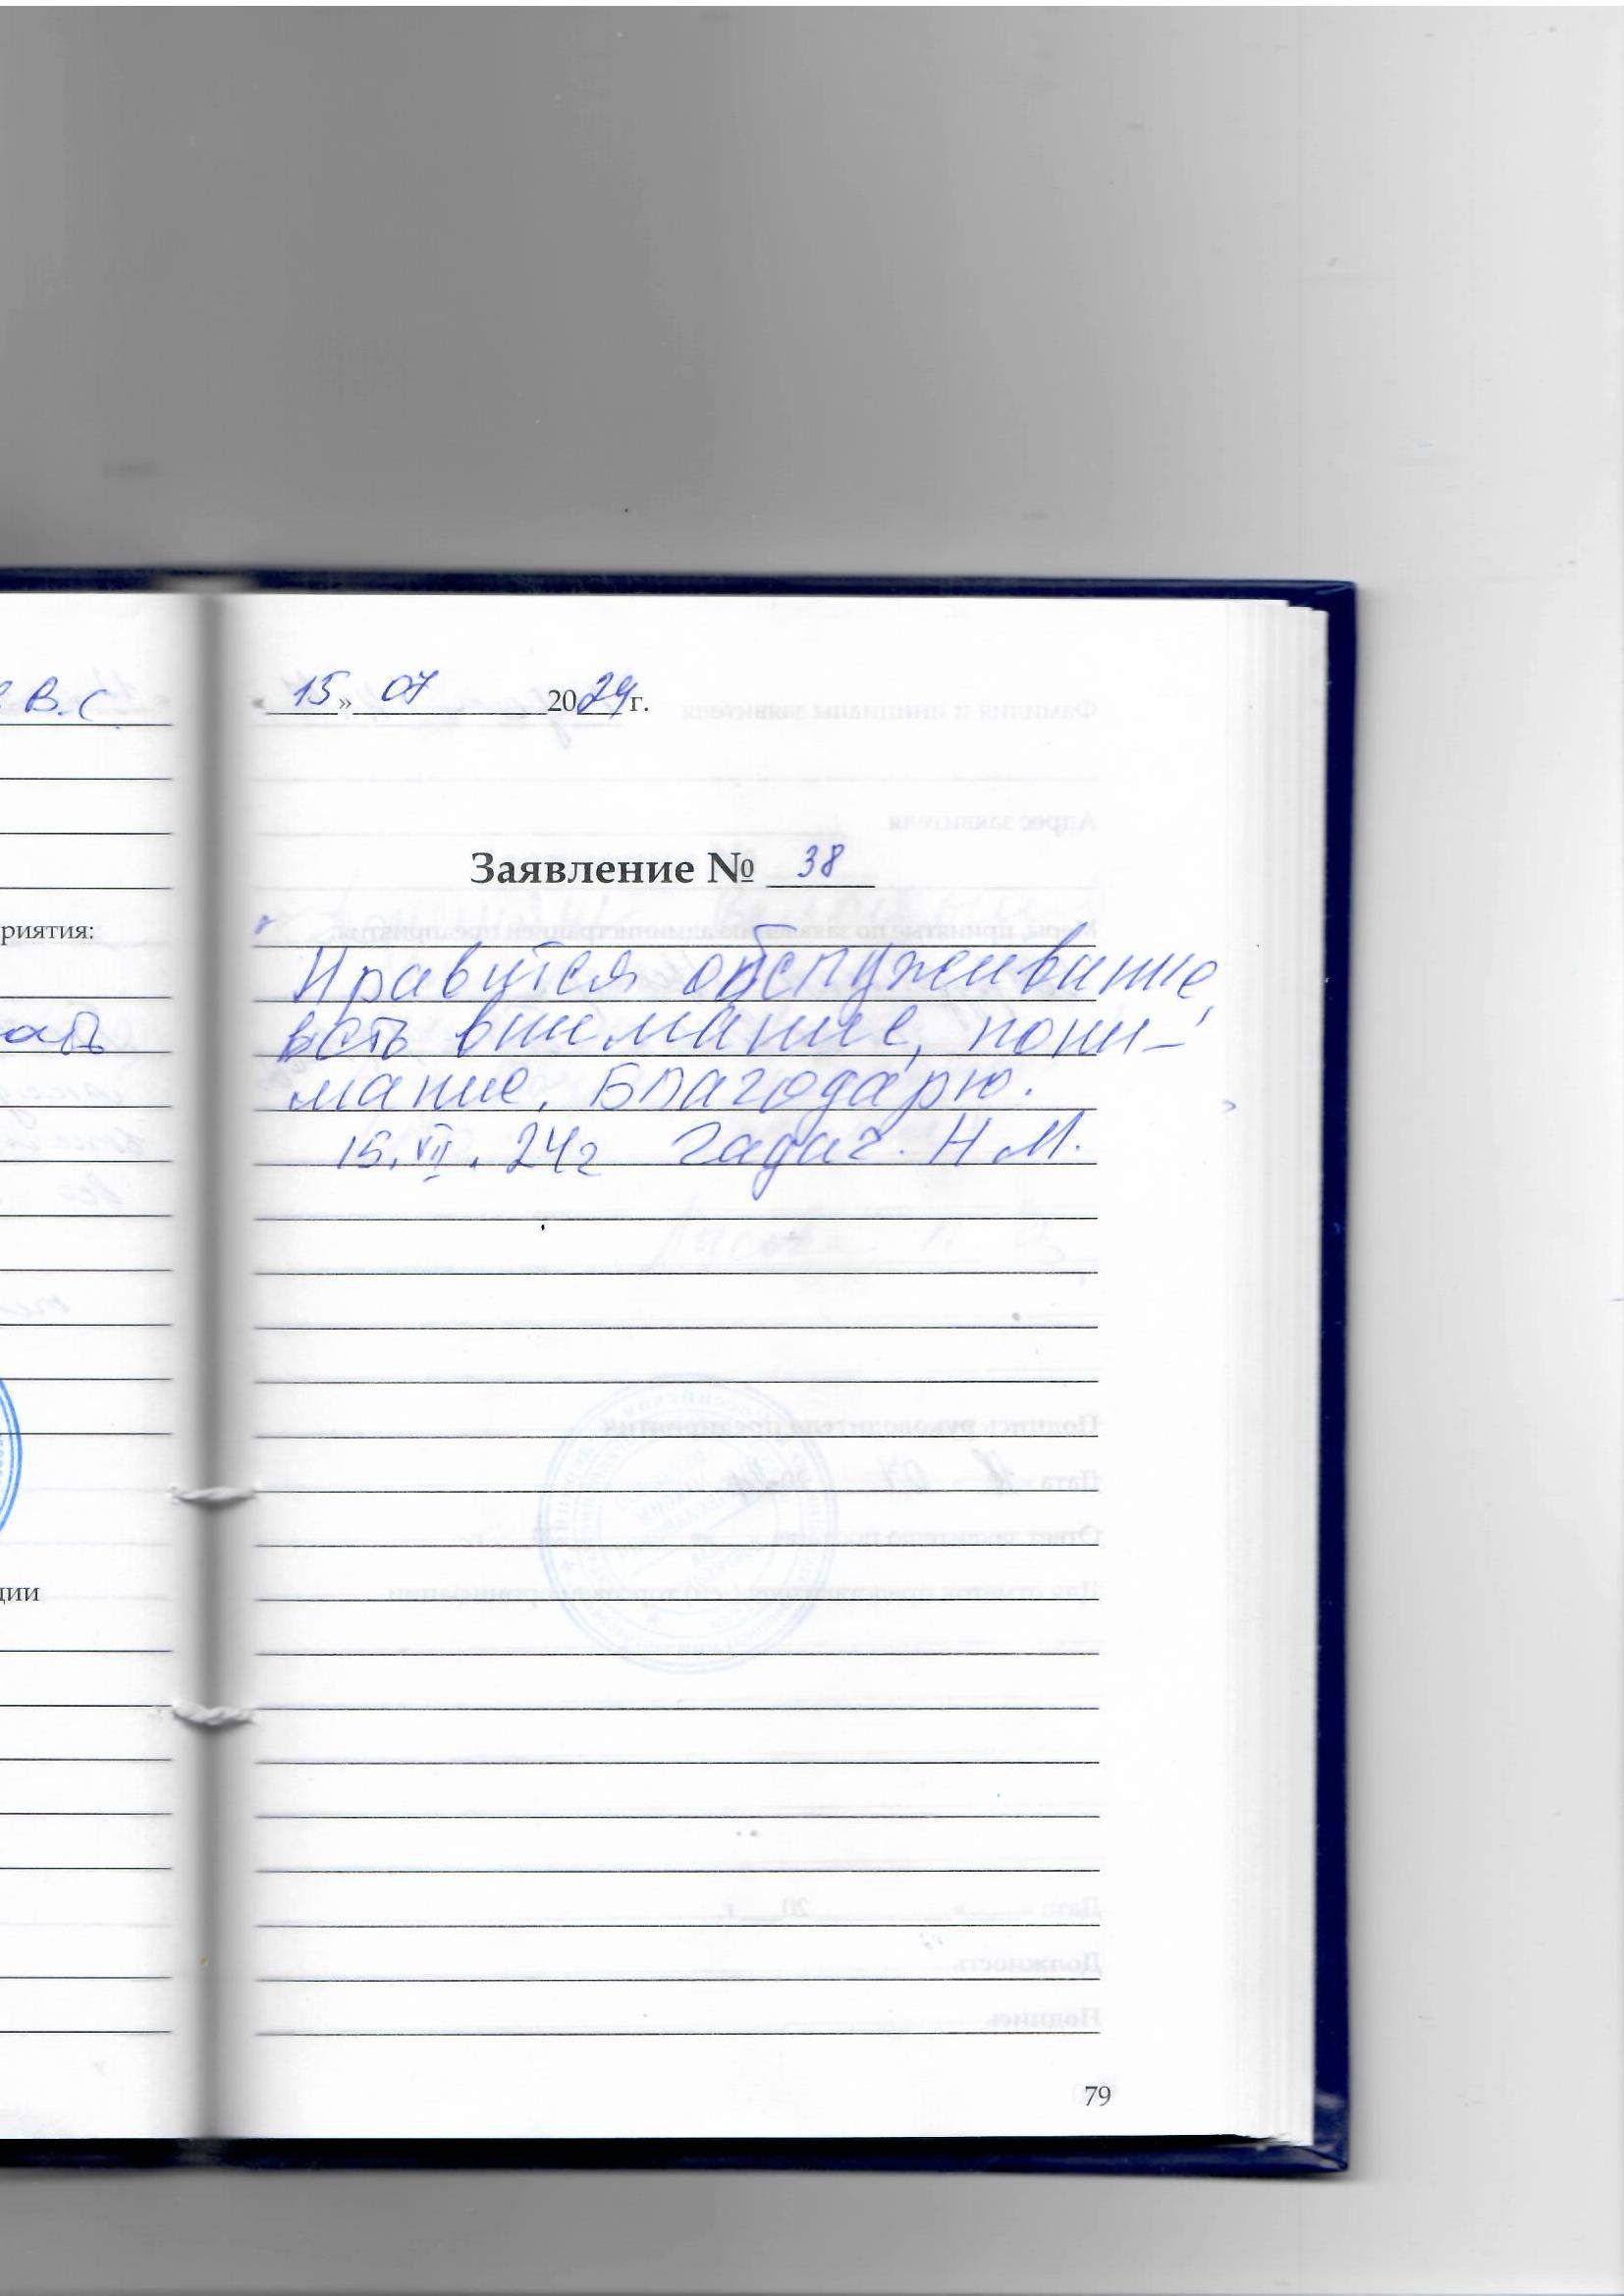 В. С
риятия:
ции
« 15 » 07 2024 г.
Заявление № 38
Нравится обслуживание,
есть внимание, пони-
мание. Благодарю.
15. VII. 24г Н М.
79